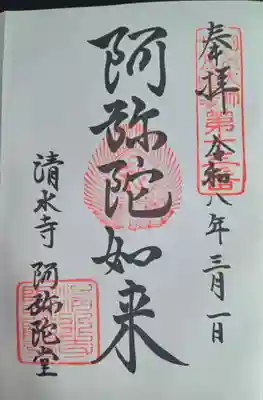 奉拝
令和八年三月一日
阿弥陀如来
清水寺
阿弥陀堂